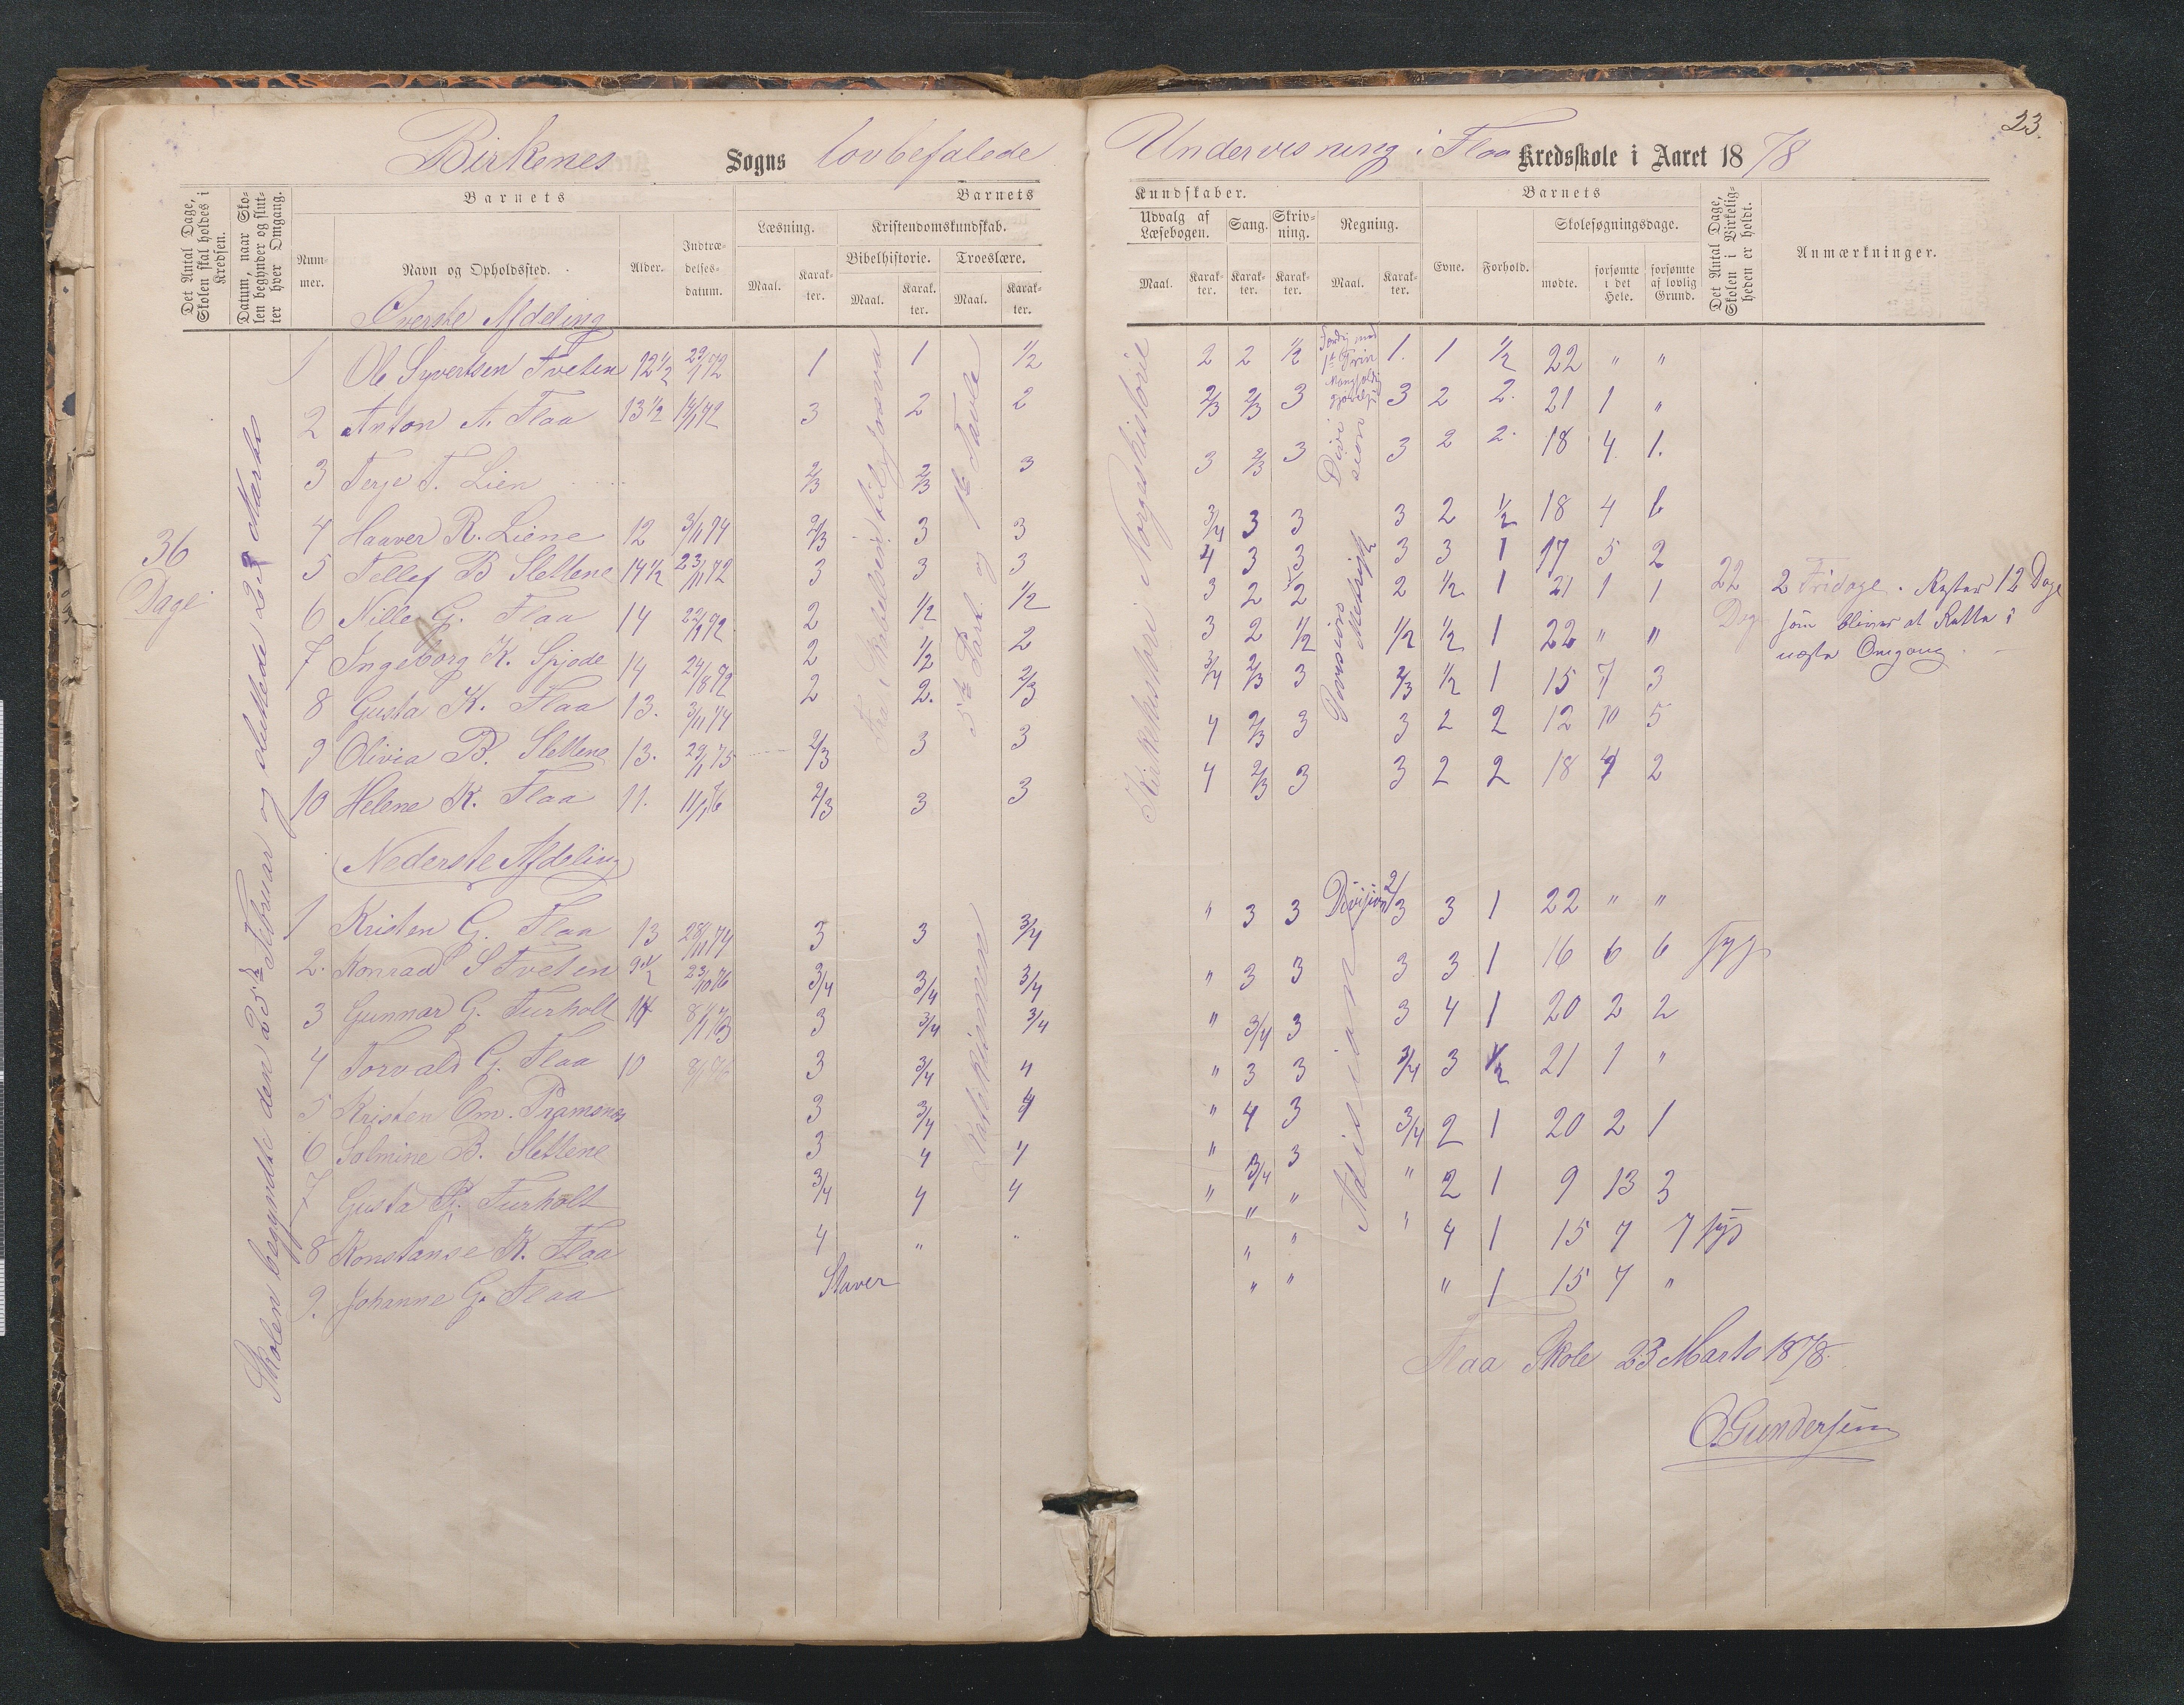 23.
Birkenes Sogns lovbefalede Undervisning i Flaa Kredsskole i Aaret 1878
Det Antal Dage, Skolen skal holdes i Kredsen.
Datum, naar Skolen begynder og slutter hver Omgang.
Barnets
Nummer.
Navn og Opholdssted.
Alder.
Indtrædelsesdatum.
Barnets
Læsning.
Maal.
Karakter.
Kristendomskundskab.
Bibelhistorie.
Maal.
Karakter.
Troeslære.
Maal.
Karakter.
Kundskaber.
Udvalg af Læsebogen.
Maal.
Karakter.
Sang.
Karakter.
Skrivning.
Karakter.
Regning.
Maal.
Karakter.
Barnets
Evne.
Forhold.
Skolesøgningsdage.
mødte.
forsømte i det Hele.
forsømte af lovlig Grund.
Det Antal Dage, Skolen i Virkeligheden er holdt.
Anmærkninger.
36 Dage
Skolen begyndte den 25de Februar og sluttede 23 Marts
Øverste Afdeling
1 Ole Syvertsen Tveten 12 1/2 1 1 1/2 2 2 1/2 1. 1 1/2 22 " "
2 Anton A. Flaa 13 1/2 3 2 2 2/3 2/3 3 3 2 2. 21 1 "
3 Terje T. Lien 2/3 2/3 3 3 2/3 3 3 2 2. 18 4 1.
4 Haaver R. Liene 12 3/11 74 2/3 3 3 3/4 3 3 3 2 1/2 18 4
5 Tellef B Slettene 14 1/2 23/11 72 3 3 3 4 3 3 3 3 1 17 5 2
6 Nille G. Flaa 14 2 1/2 1/2 3 2 2 1/2 1 21 1 1
7 Ingeborg K. Spjode 14 2 1/2 2 3 2 1/2 1/2 1/2 1 22 " "
8 Gusta K. Flaa 13. 3/11 74 2 2. 2/3 3/4 2/3 3 2/3 1/2 1 15 7 3
9 Olivia B. Slettene 13. 29/11 75 2/3 3 3 4 2/3 3 3 2 2 12 10 5
10 Helene K. Flaa 11. 2/3 3 3 4 2/3 3 3 2 2 18 4 2
Fra Bibelhist. til Josva
5te Part og 1te Tavle
Kirkehistori i Norgeshistorie
Division
22 Dag
2 Fridage. Rester 12 Dage
som blive at Rette i
næste Omgang.
Nederste Afdeling
1 Kristen G. Flaa 13 28/11 74 3 3 3/4 " 3 3 Division 2/3 3 1 22 " "
2. Konrad S Tveten 23/10 76 3/4 3/4 3/4 " 3 3 3 3 1 16 6 6 syg
3 Gunnar G. Furholt 14 3 3/4 3/4 " 3/4 3 3 4 1 20 2 2
4 Torvald G. Flaa 10 3 3/4 4 " 3 3 3/4 3 1/2 21 1 "
5 Kristen Om. Pramsnes 3 3/4 4 " 4 3 3/4 2 1 20 2 1
6 Salmine B. Slettene 3 4 4 " 3/4 3 " 2 1 9 13 3
7 Gusta K. Furholt 3/4 4 4 " " " " 4 1 15 7 7 syg
8 Konstanse K. Flaa 4 " " " " " 1 15 7 "
9. Johanne G. Flaa Staver
Katekismen
Adision
Flaa Skole 23 Marts 1878.
O. Gundersen